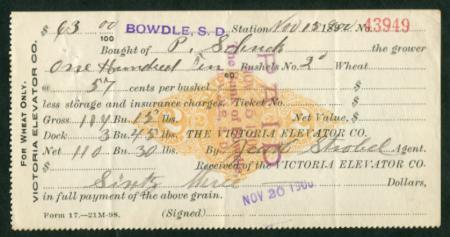 $ 63 00/100 BOWDLE, S. D. Station Nov 15 1900 No. 43949
Bought of P. Schuck the grower
One Hundred Ten 30/60 Bushels No. 2 Wheat
@ 57 cents per bushel $
less storage and insurance charges. Ticket No. $
Gross 114 Bu. 15 lbs. Net Value. $
Dock 3 Bu. 45 lbs. THE VICTORIA ELEVATOR CO.
Net 110 Bu. 30 lbs. By Jacob Strobel Agent.
$ Received of the VICTORIA ELEVATOR CO
Sixty three Dollars,
in full payment of the above grain.
Form 17.—21M-98. (Signed)
NOV 20 1900
FOR WHEAT ONLY.
VICTORIA ELEVATOR CO.
PAID